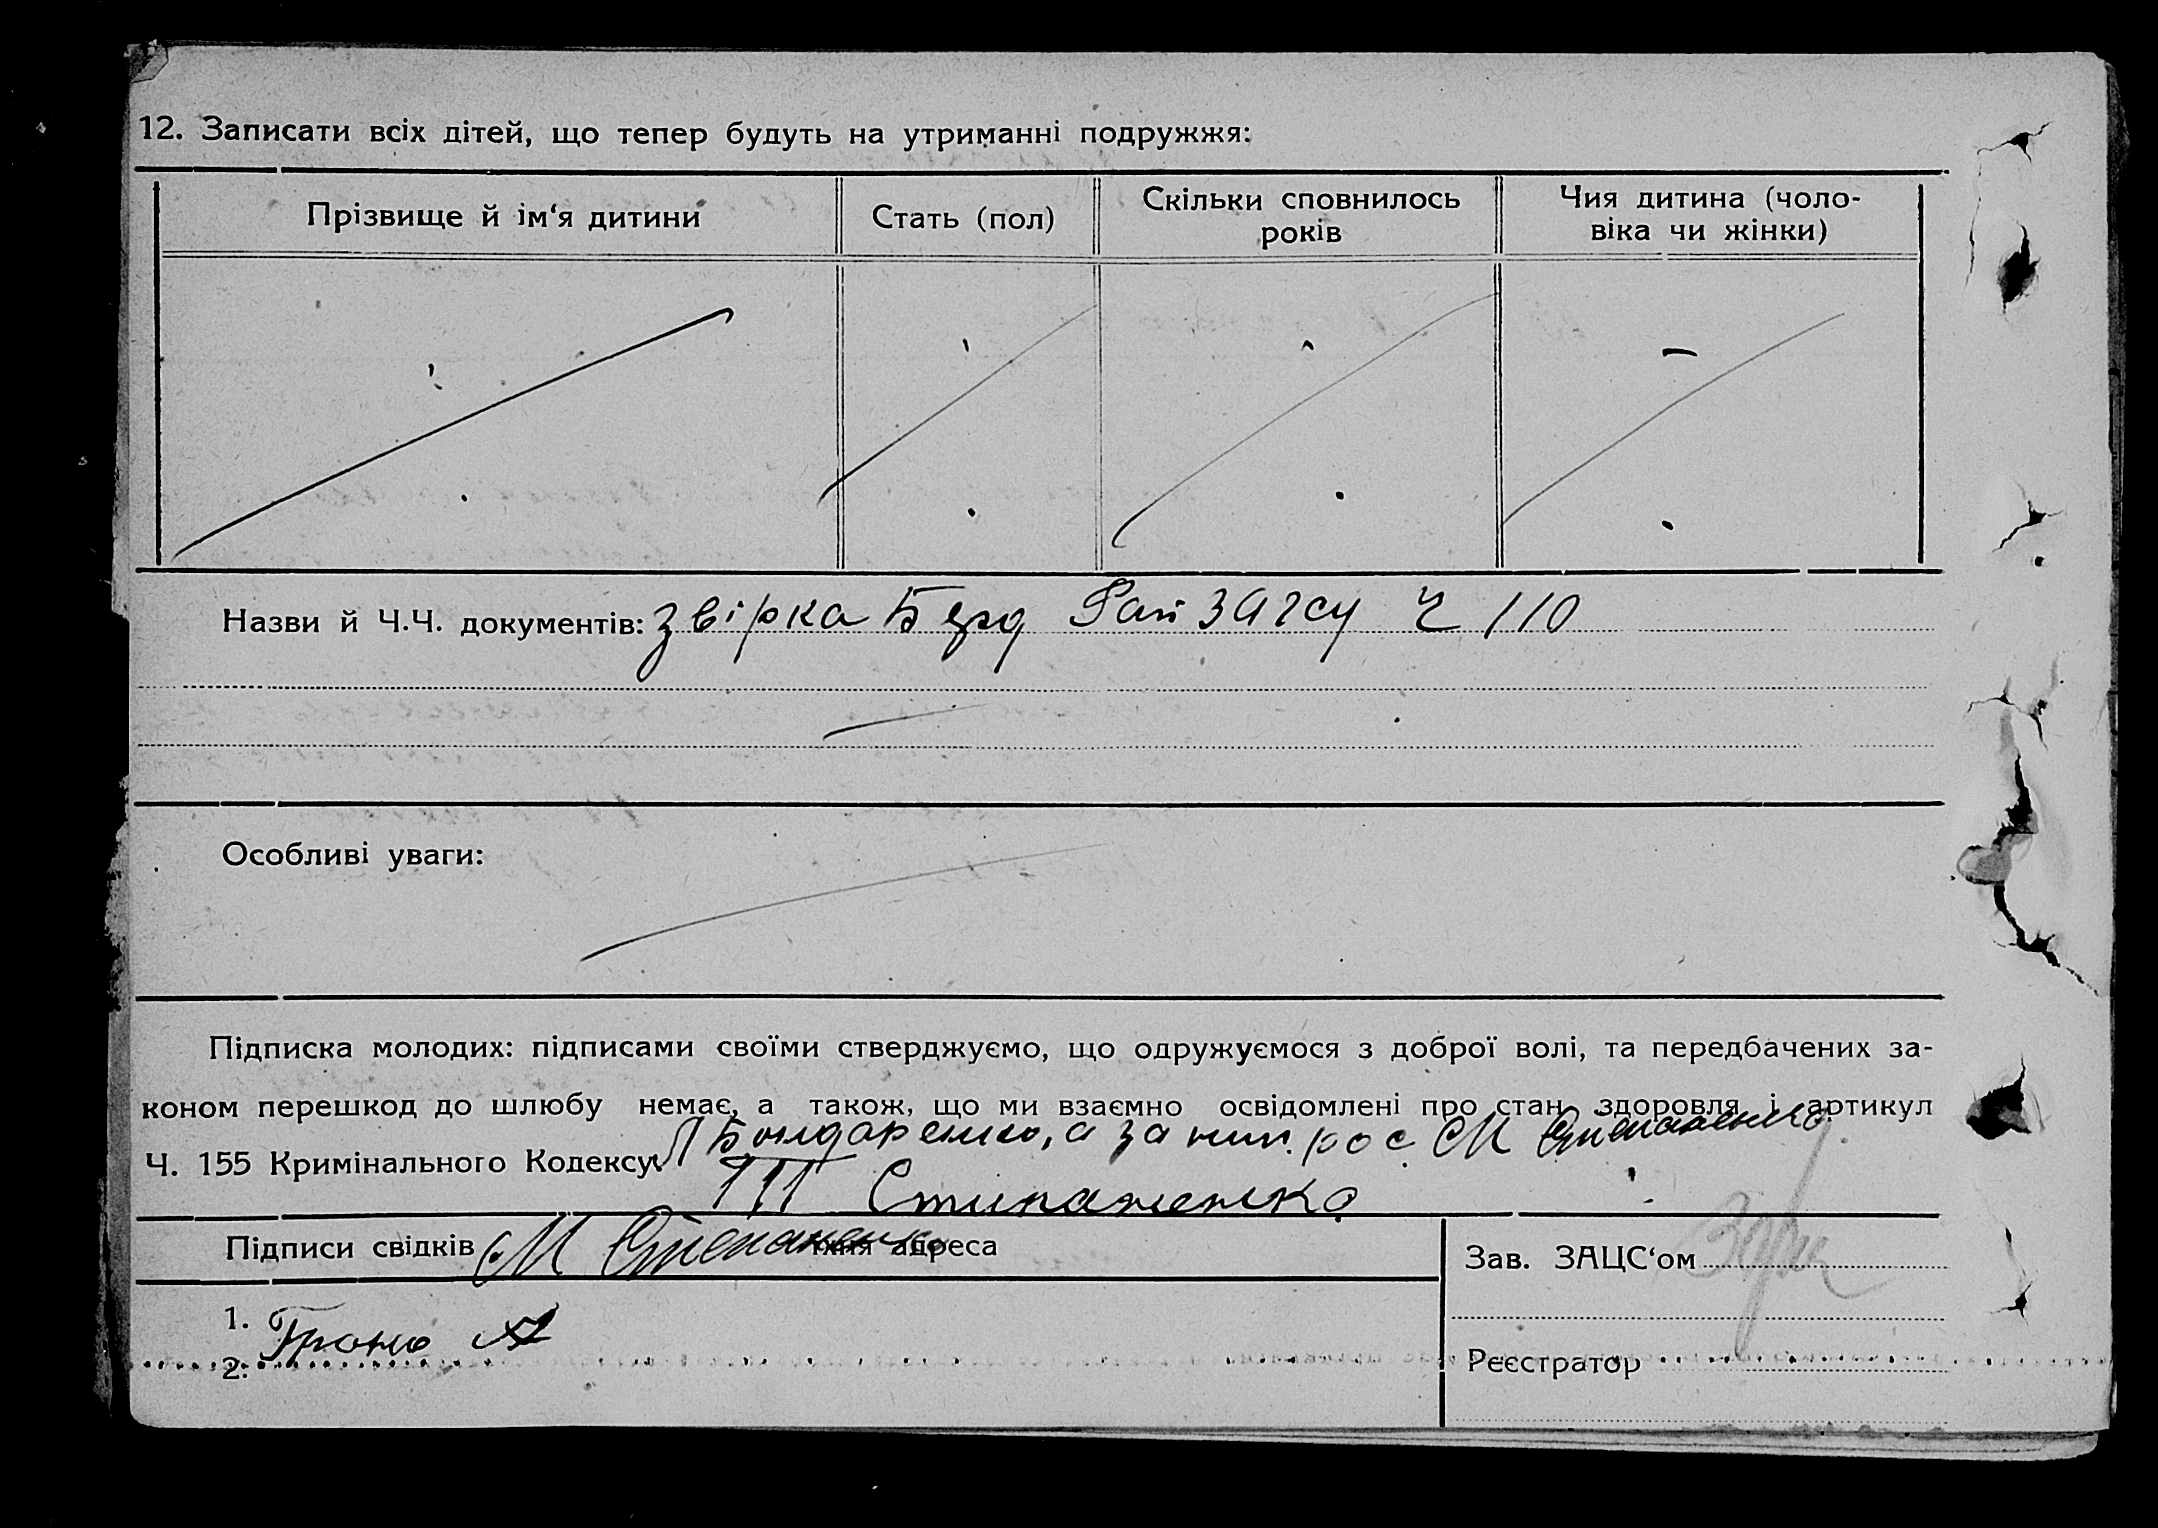 12. Записати всіх дітей, що тепер будуть на утриманні подружжя:
Прізвище й ім‘я дитини
Стать (пол)
Скільки сповнилось
років
Чия дитина (чоло-
віка чи жінки)
Назви й Ч.Ч. документів: звірка Рай загсу Ч 110
Особливі уваги:
Підписка молодих: підписами своїми стверджуємо, що одружуємося з доброї волі, та передбачених за-
коном перешкод до шлюбу немає, а також, що ми взаємно освідомлені про стан здоровля і артикул
Ч. 155 Кримінального Кодексу Бондаренко, а за рос М Степаненко
Степаненко
Підписи свідків М Степаненко їхня адреса
Зав. ЗАЦС‘ом
1.
2.
Реєстратор